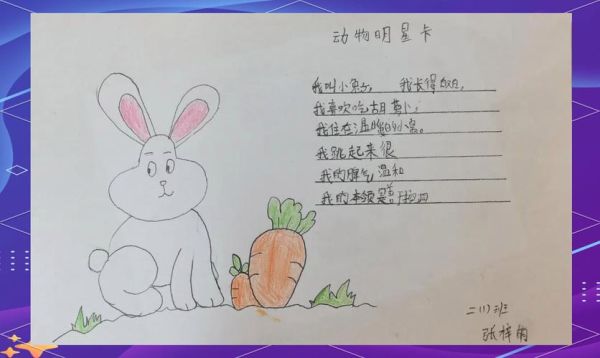 动物明星卡
我叫小兔子，我长得
我喜欢吃胡萝卜，
我住在温暖的小窝。
我跳起来很
我的脾气温和
我的本领是
二(1)班
张梓